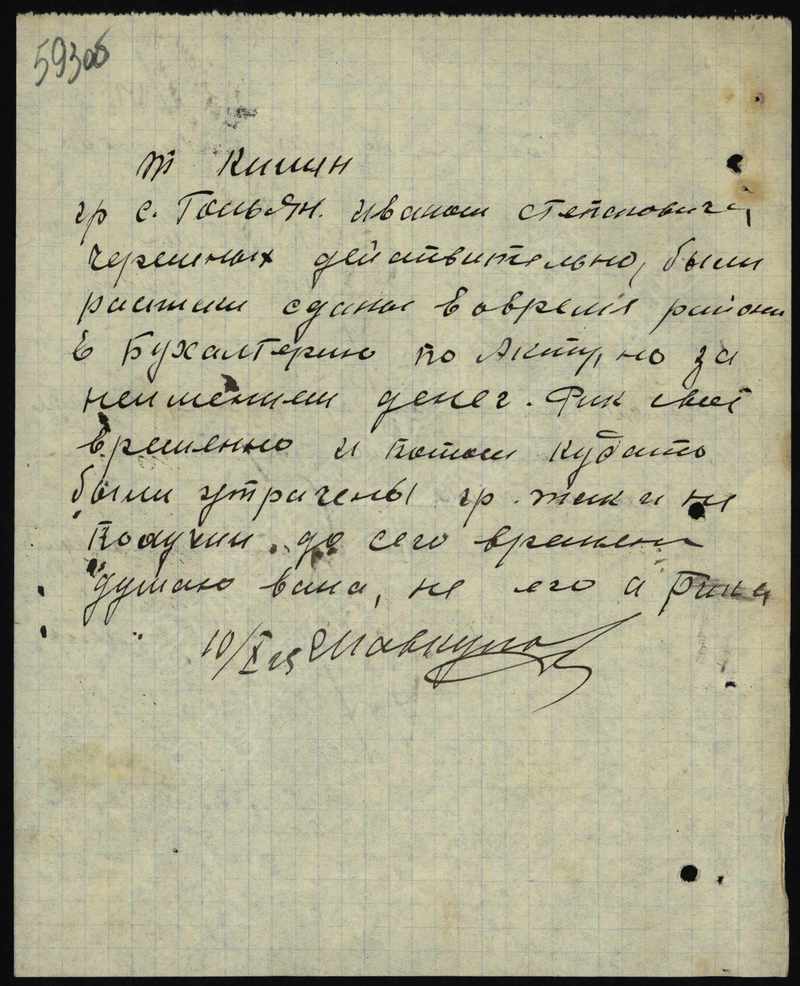 593об
т Кишин
гр с. Гольян. Иваном Степановича
Черемных действительно, были
сданы вовремя
в Бухалтерию по Акту, но за
неимением денег. Рик
временно и потом кудато
были утрачены гр. так и не
получил до сего времени
думаю вина, не его а Рика
10/X